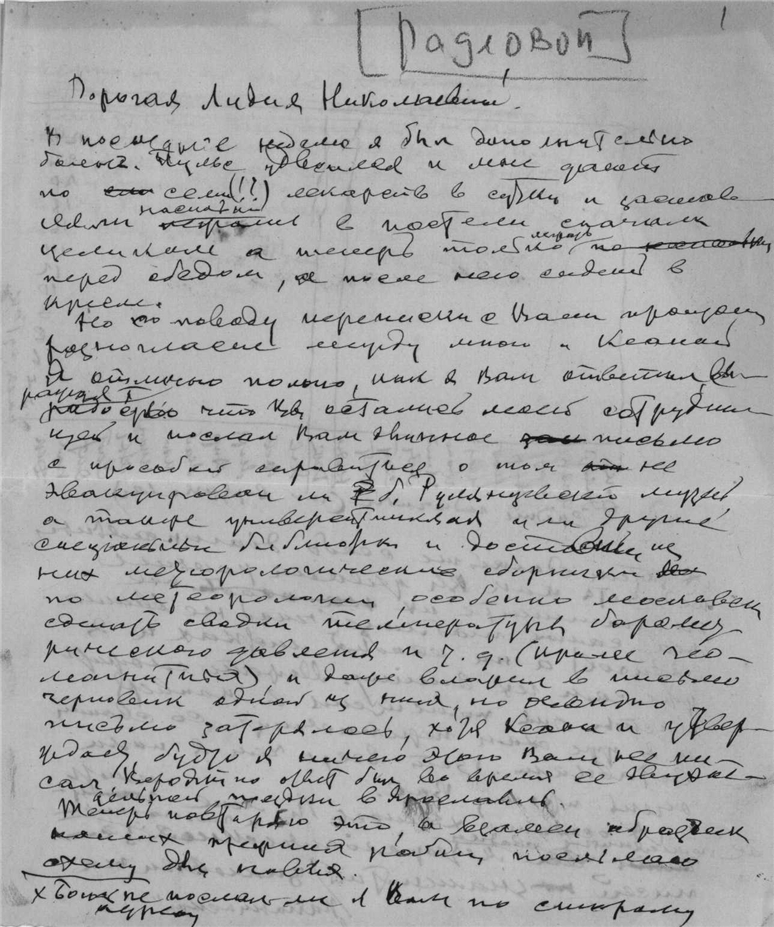 [Радловой]
1
Дорогая Лидия Николаевна.
В последние неделю я был дополнительно
болен. Пульс удвоился и мне дают
по семи (!?) лекарств в сутки и застав
ляли в постели сначала
целиком а теперь только
перед обедом, а после него сидеть в
кресле.
Но по поводу переписки с Вами
разногласие между мною и Ксаной
Я отлично помню, как я Вам ответил,
что Вы остались моей сотрудни
цей и послал Вам длинное письмо
с просьбой справиться о том не
эвакуирован ли б. Румянцевский музей,
а также университетская или другие
библиотеки и достать из
них метеорологические сборники
по метеорологии, особенно московск
сделать сводки температуры баромет
рического давления и т. д. (кроме гео-
магнитных) и даже вложил в письмо
черновик одной из них, но очевидно
письмо затерялось, хотя Ксана и утвер-
ждает, будто я ничего этого Вам не пи-
сал Вероятно ответ был во время ее двухне-
дельной поездки в Ярославль.
Теперь повторяю это, а взамен
посылаю
схему для
х не послал ли я Вам по старому